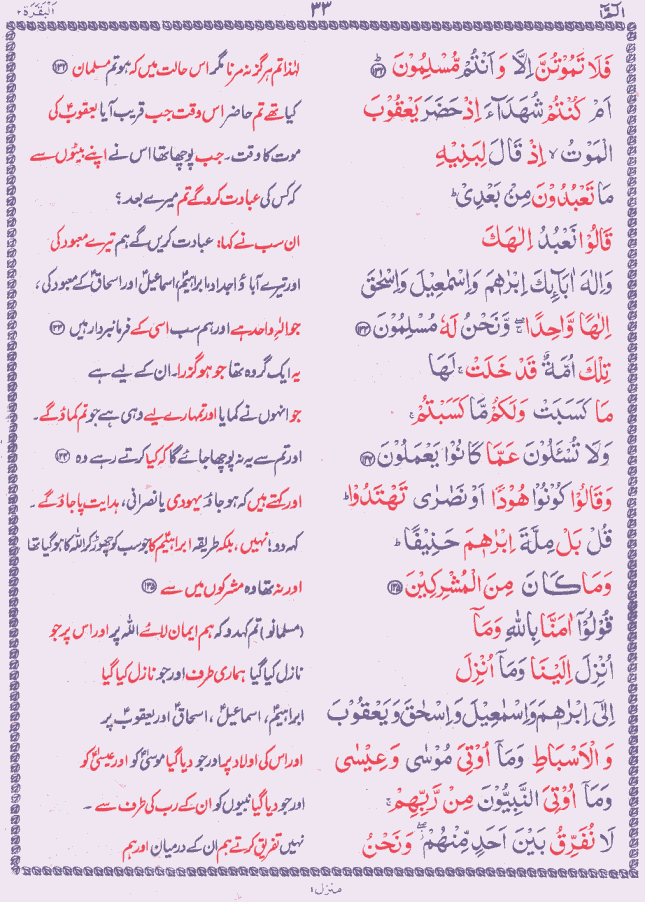 الٓمّٓ ۱ ۳۳ اَلْبَقَرَة ۲
فَلَا تَمُوْتُنَّ اِلَّا وَاَنْتُمْ مُّسْلِمُوْنَ ؕ﴿۱۳۲﴾ لہٰذا تم ہرگز نہ مرنا مگر اس حالت میں کہ ہو تم مسلمان ﴿۱۳۲﴾
اَمْ كُنْتُمْ شُهَدَآءَ اِذْ حَضَرَ يَعْقُوْبَ کیا تھے تم حاضر اس وقت جب قریب آیا یعقوبؑ کی
الْمَوْتُ ۙ اِذْ قَالَ لِبَنِيْهِ موت کا وقت۔ جب پوچھا تھا اس نے اپنے بیٹوں سے
مَا تَعْبُدُوْنَ مِنْۢ بَعْدِىْ ؕ کہ کس کی عبادت کرو گے تم میرے بعد؟
قَالُوْا نَعْبُدُ اِلٰهَكَ ان سب نے کہا: عبادت کریں گے ہم تیرے معبود کی
وَاِلٰهَ اٰبَآٮِٕكَ اِبْرٰهٖمَ وَاِسْمٰعِيْلَ وَاِسْحٰقَ اور تیرے آباؤ اجداد، ابراہیمؑ، اسماعیلؑ اور اسحاقؑ کے معبود کی،
اِلٰهًا وَّاحِدًا ۖۚ وَّنَحْنُ لَهٗ مُسْلِمُوْنَ ﴿۱۳۳﴾ جو الٰہِ واحد ہے اور ہم سب اسی کے فرمانبردار ہیں ﴿۱۳۳﴾
تِلْكَ اُمَّةٌ قَدْ خَلَتْ ۚ لَهَا یہ ایک گروہ تھا جو ہو گزرا۔ ان کے لیے ہے
مَا كَسَبَتْ وَلَكُمْ مَّا كَسَبْتُمْ ۚ جو انہوں نے کمایا اور تمہارے لیے وہی ہے جو تم کماؤ گے۔
وَلَا تُسْـَٔلُوْنَ عَمَّا كَانُوْا يَعْمَلُوْنَ ﴿۱۳۴﴾ اور تم سے یہ نہ پوچھا جائے گا کہ کیا کرتے رہے وہ ﴿۱۳۴﴾
وَقَالُوْا كُوْنُوْا هُوْدًا اَوْ نَصٰرٰى تَهْتَدُوْا ؕ اور کہتے ہیں کہ ہو جاؤ یہودی یا نصرانی، ہدایت پا جاؤ گے۔
قُلْ بَلْ مِلَّةَ اِبْرٰهٖمَ حَنِيْفًا ؕ کہہ دو! نہیں، بلکہ طریقہ ابراہیمؑ کا جو سب کو چھوڑ کر اللہ کا ہو گیا تھا
وَمَا كَانَ مِنَ الْمُشْرِكِيْنَ ﴿۱۳۵﴾ اور نہ تھا وہ مشرکوں میں سے ﴿۱۳۵﴾
قُوْلُوْٓا اٰمَنَّا بِاللّٰهِ وَمَآ (مسلمانو) تم کہہ دو کہ ہم ایمان لائے اللہ پر اور اس پر جو
اُنْزِلَ اِلَيْنَا وَمَآ اُنْزِلَ نازل کیا گیا ہماری طرف اور جو نازل کیا گیا
اِلٰٓى اِبْرٰهٖمَ وَاِسْمٰعِيْلَ وَاِسْحٰقَ وَيَعْقُوْبَ ابراہیمؑ، اسماعیلؑ، اسحاقؑ اور یعقوبؑ پر
وَالْاَسْبَاطِ وَمَآ اُوْتِىَ مُوْسٰى وَعِيْسٰى اور اس کی اولاد پر اور جو دیا گیا موسیٰؑ کو اور عیسیٰؑ کو
وَمَآ اُوْتِىَ النَّبِيُّوْنَ مِنْ رَّبِّهِمْ ۚ اور جو دیا گیا نبیوں کو ان کے رب کی طرف سے ۔
لَا نُفَرِّقُ بَيْنَ اَحَدٍ مِّنْهُمْ ۖ وَنَحْنُ نہیں تفریق کرتے ہم ان کے درمیان اور ہم
منزل ۱